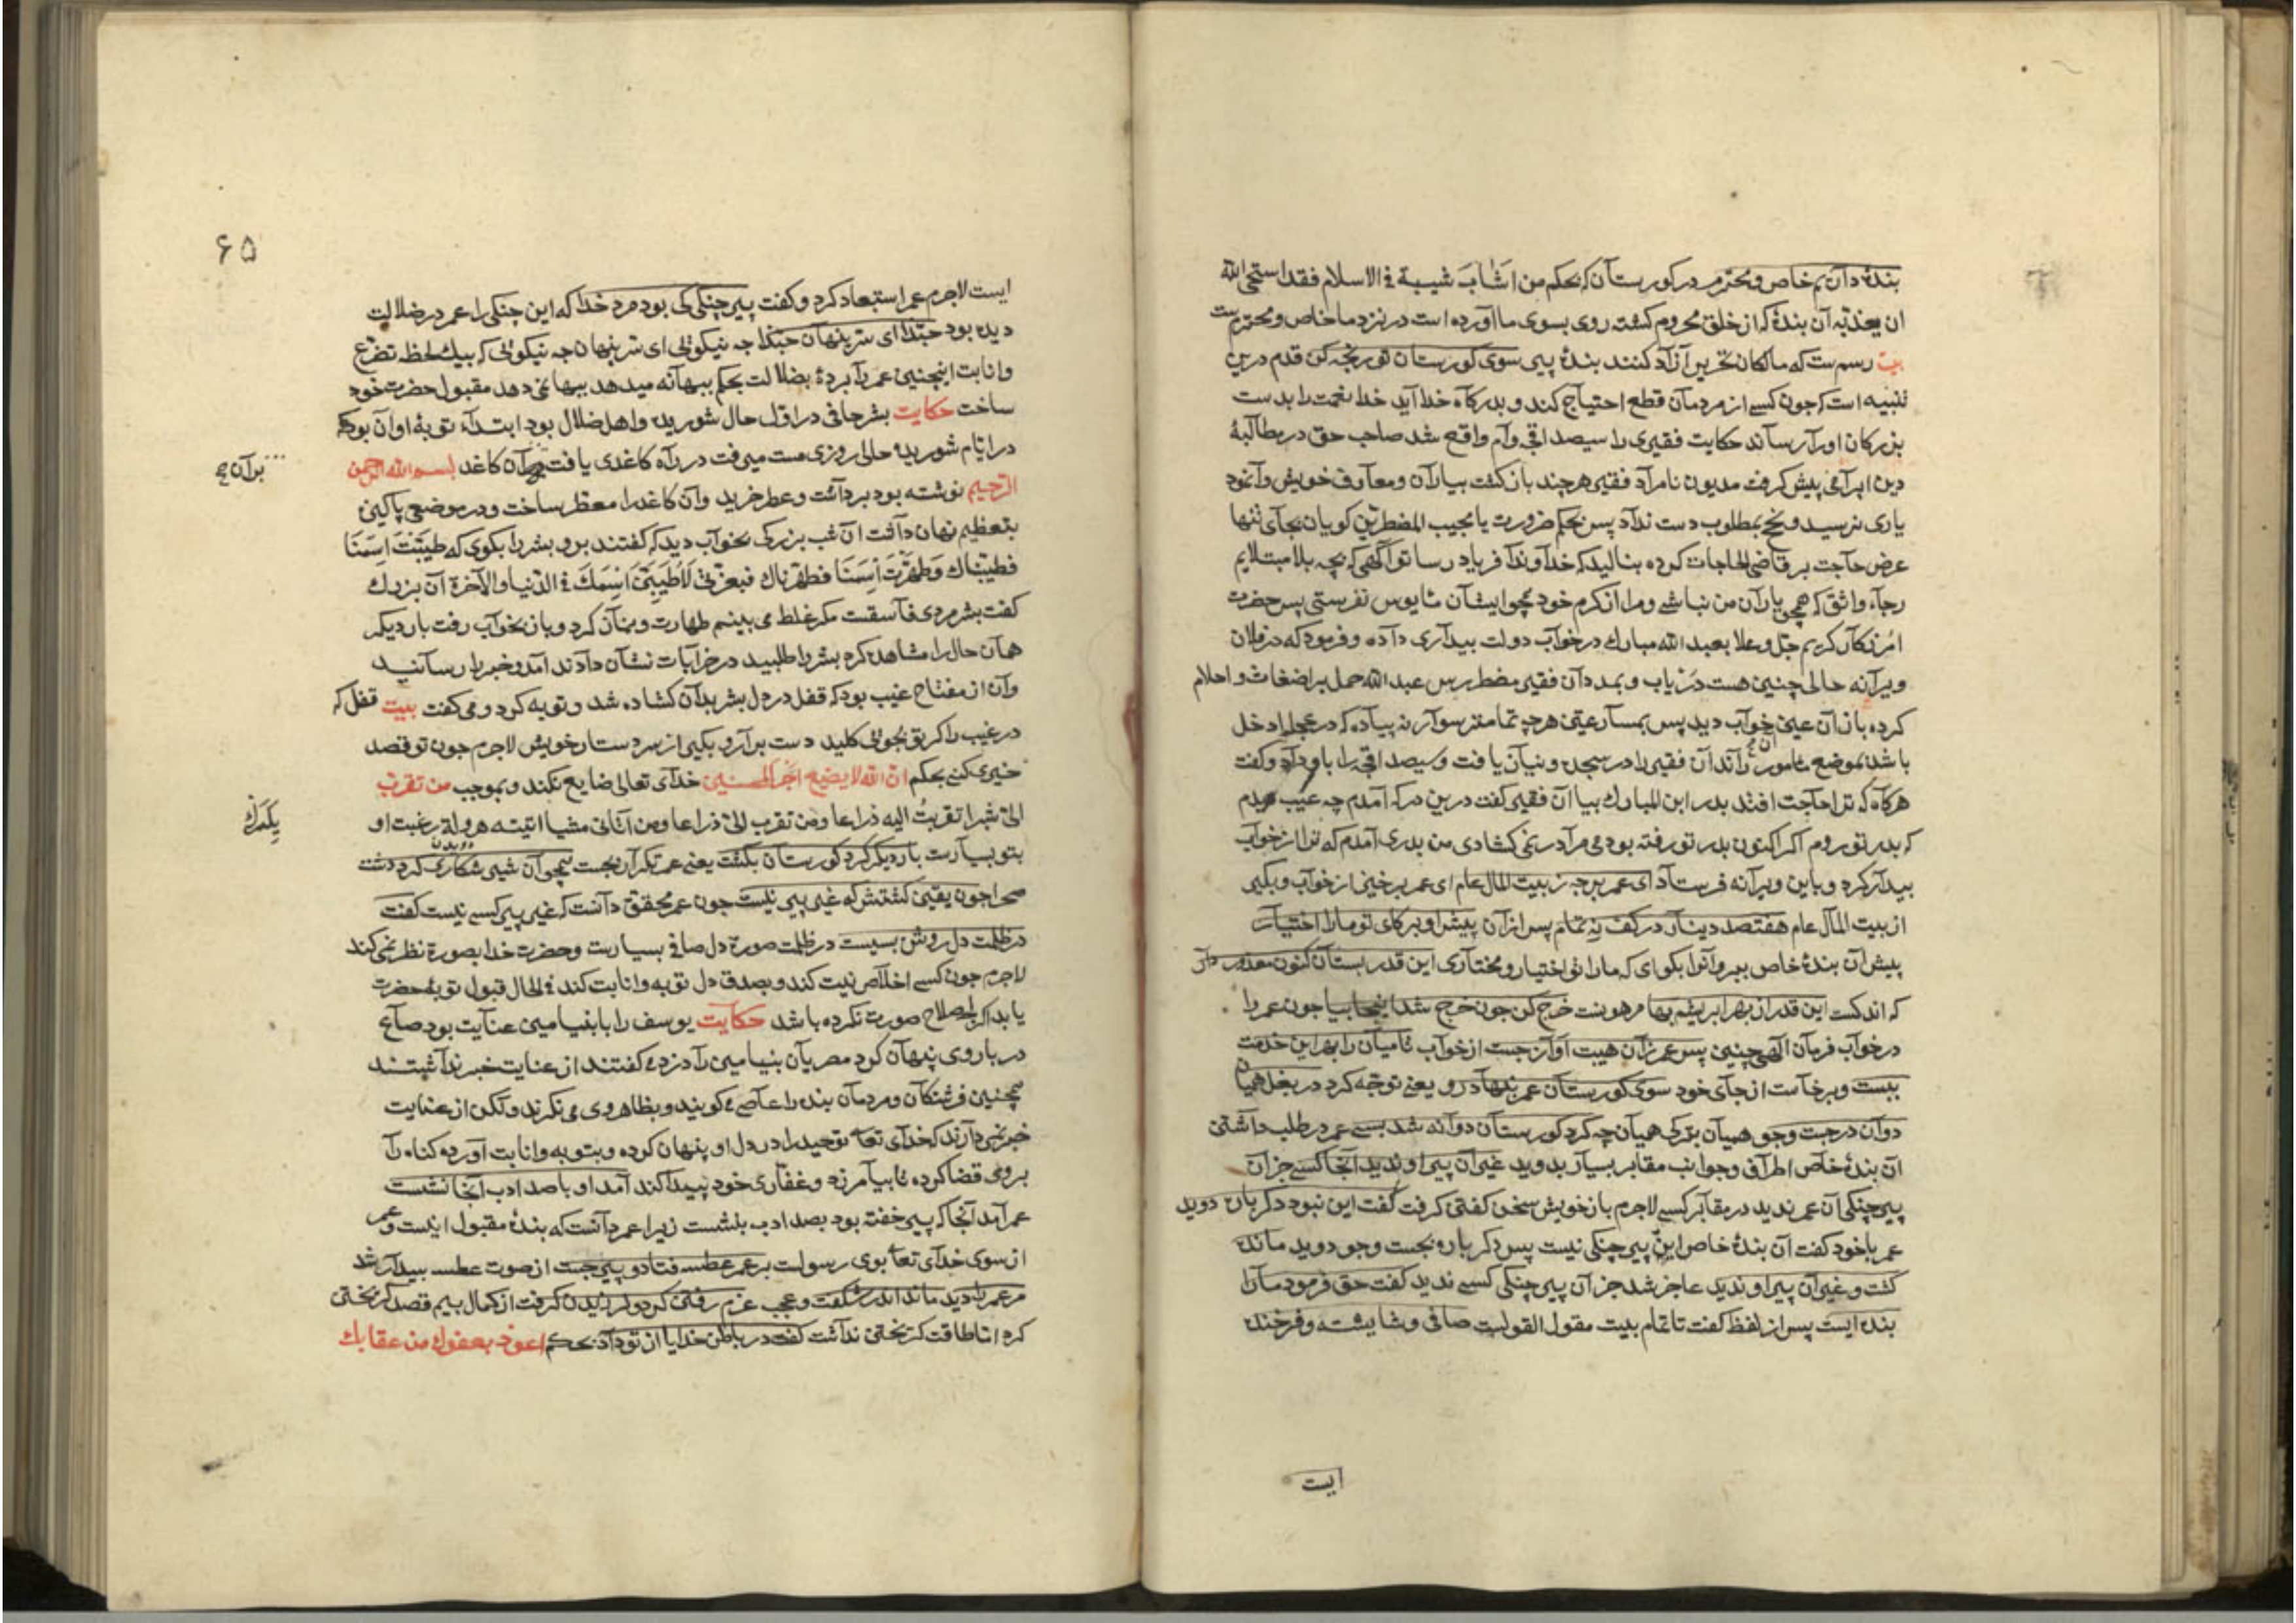 بندهٔ دآن یم خاص و محترم در کورستآن که بحکم من اَشَابَ شیبة فی الاسلام فقد استحی الله
ان یعذبه آن بندهٔ که از خلق محروم کشته روی بسوی ما آورده است در نزد ما خاص و محترمست
بیت رسم ست که مالکان تحریر آزآد کنند بندهٔ پیر سوی کورستان تو رنجه کن قدم درین
تنبیه است که جون کسے از مردمآن قطع احتیاج کند و بدرکآه خدا آید خدا نعمت را بدست
بزرکان اورا رسآند حکایت فقیری را سیصد اقچه وآم واقع شد صاحب حق در مطآلبهٔ
دین ابرآمی پیش کرفت مدیون نامرآد فقیر هرچند باز کشت بیارآن و معآرف خویش وآنمود
یاری نرسید و نجح مطلوب دست ندآد پس بحکم ضرورت یا مجیب المضطرین کویان بجآی تنها
عرض حآجت بر قاضی الحاجات کرده بنالید که خدآوندآ فریاد رسا تو آکهی که بچه بلا مبتلایم
رجاء واثق که همچو یارآن من نباشے و مرا از کرم خود همچو ایشآن مأیوس نفرستی پس حضرت
آمرزکآر کریم جل و علا بعبد الله مبارك در خوآب دولت بیدآری دآده و فرمود که در فلان
ویرآنه حالی چنین هست دریاب و بمدد آن فقیر مضطر برس عبد الله حمل بر اضغاث و احلام
کرده باز آن عین خوآب دید پس بمسآرعتی هرچه تمامتر سوآر نه پیآده که در عجله ادخل
باشد بموضع مأمور رآند آن فقیر را در سجده و نیآن یافت و سیصد اقچه را باو دآد و کفت
هرکآه که ترا حآجت افتد بدر ابن المبارك بیا آن فقیر کفت درین درکه آمدم چه عیب دیدم
که بدر تو روم اکر اکنون بدر تو رفته بودمی مرآ در نمی کشادی من بدری آمدم که ترا از خوآب
بیدآر کرد و باین ویرآنه فرستآد ای عمر برجه ز بیت المال عام ای عمر برخیز از خوآب و بکیر
از بیت المآل عام هفتصد دینآر در کف نه تمام پس از آن پیش او بر کای تو مارا اختیآر
پیش آن بندهٔ خاص ببر و آنرا بکو ای که مارا توی اختیار و مختآری این قدر بستآن کنون معذور دآر
که اندکست این قدر از بهر ابریشم بها مرهونت خرج کن جون خرج شد اینجا بیا جون عمر را
در خوآب فرمآن الهی چنین پس عمر زآن هیبت آوآز جست از خوآب تا میآن را بهر این خدمت
ببست و برخآست از جآی خود سوی کورستآن عمر بنهآد رو یعنی توجه کرد در بغل همیان
دوآن در جست و جو همیآن بزرک همیآن چه کرد کورستآن دوآنه شد بسے عمر در طلب دآشتن
آن بندهٔ خآص اطرآف و جوآنب مقابر بسیآر بدوید غیر آن پیر او ندید آنجا کسے جز آن
پیر چنکی آن عمر ندید در مقآبر کسے لاجرم با خویش سخن کفتن کرفت کفت این نبود دکر باره دوید
عمر با خود کفت آن بندهٔ خاص این پیر چنکی نیست پس دکر باره بجست و جو دوید مانده
کشت و غیر آن پیر او ندید عاجز شد جز آن پیر چنکی کسے ندید کفت حق فرمود مآرا
بنده ایست پس از لفظ کفت تا تمام بیت مقول القولست صافی و شایسته و فرخنده
ایست
۶۵
ایست لاجرم عمر استبعاد کرد و کفت پیر چنکی کی بود مرد خدا که این چنکی را عمر در ضلالت
دیده بود حبّذا ای سرّ پنهان حبّذا چه نیکویی ای سرّ پنهان چه نیکویی که بیك لحظه تضرّع
و انابت اینچنین عمر رآ برده بضلالت بحکم ببهآنه میدهد ببها نمی دهد مقبول حضرت خود
ساخت حکایت بشر حافی در اوّل حال شوریده و اهل ضلال بود ابتدآء توبهٔ او آن بود که
در ایّام شوریده حالی روزی مست میرفت در رآه کاغدی یافت بر آن کاغد بسم الله الرحمن
برآن
الرحیم نوشته بود بردآشت و عطر خرید و آن کاغد را معطر ساخت و در موضعی پاکیزه
بتعظیم نهان دآشت آن شب بزرکی بخوآب دید که کفتند برو بشر را بکوی که طیّبْتَ اسمنا
فطیّبناك وَطهّرْتَ اسمَنا فطهّرناك فبعزّتی لَاُطَیِبَنَّ اسْمَكَ فی الدّنیا والآخرة آن بزرك
کفت بشر مردی فآسقست مکر غلط می بینم طهارت و نمآز کرد و باز بخوآب رفت بار دیکر
همآن حال را مشاهده کرد بشر را طلبید در خرابات نشآن دادند آمد و خبر را رسآنید
و آن از مفتاح غیب بود که قفل در دل بشر بدآن کشاده شد و توبه کرد و می کفت بیت قفل که
در غیب را کر تو بجویی کلید دست بر آر و بکیر از سر دستار خویش لاجرم جون تو قصد
خیری کنی بحکم انّ الله لا یضیع اجر المحسنین خدآی تعالی ضایع نکند و بموجب من تقرب
الیّ شبرا تقربتُ الیه ذراعا ومن تقرب الیّ ذراعا ومن آتانی مشیا اتیته هرولة رغبت او
بتو بسیآرست بار دیکر کرد کورستآن بکشت یعنی عمر تکرآر بجست همچو آن شیر شکاری کرد دشت
صحرا جون یقین کشتش که غیر پیر نیست جون عمر محقق دآنست که غیر پیر کسے نیست کفت
در ظلمت دل روشن بسیست در ظلمت صورة دل صافی بسیارست و حضرت خدا بصورة نظر نمی کند
لاجرم جون کسے اخلآص نیت کند و بصدق دل توبه و انابت کند فی الحال قبول توبهٔ حضرت
یابد اکر باصلاح صورت نکرده باشد حکآیت یوسف را با بنیامین عنآیت بود صآع
در بار وی پنهآن کرد مصریآن بنیامین رآ دزد می کفتند از عنایت خبر ندآشتند
همچنین فرشتکآن و مردمآن بنده را عآصی می کویند و بظاهر وی می نکرند ولکن از عنایت
خبر نمی دآرند که خدآی تعآ توحید را در دل او پنهان کرده و بتوبه و انابت آورده کناه رآ
بروی قضا کرده تا بیآمرزد و غفّاری خود پیدا کند آمد او با صد ادب آنجا نشست
عمر آمد آنجا که پیر خفته بود بصد ادب بنشست زیرا عمر دآنست که بندهٔ مقبول اینست و عمر
از سوی خدآی تعآ بوی رسولست بر عمر عطسه فتاد و پیر جست از صوت عطسه بیدآر شد
مر عمر را دید ماند اندر شکفت و عجب عزم رفتن کرد و لرزیدن کرفت از کمال بیم قصد کریختن
کرد امّا طاقت کریختن ندآشت کفت در باطن خدایا از تو دآد بحکم اعوذ بعفوك من عقابك